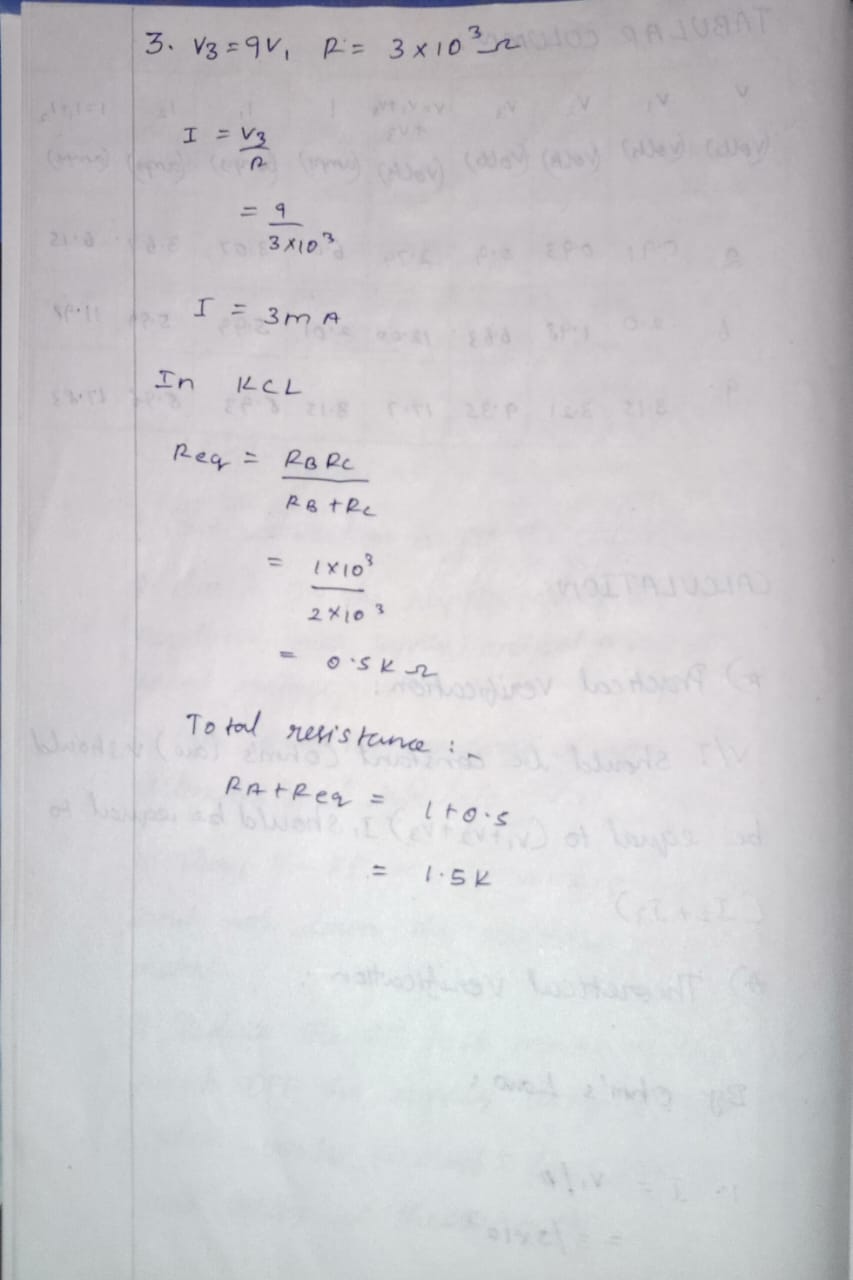 3. V3 = 9V, R = 3 x 10³ Ω
I = V3/R
= 9/3 x 10³
I = 3mA
In KCL
Req = RB RC/RB + RC
= 1 x 10³/2 x 10³
= 0.5 K Ω
Total resistance :-
RA + Req = 1 + 0.5
= 1.5 K